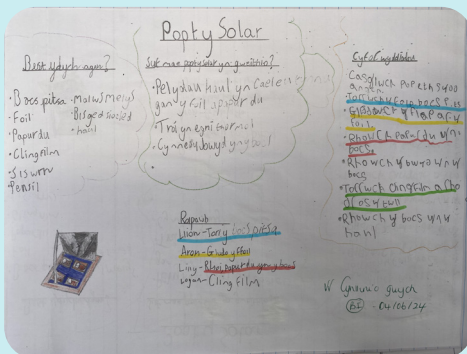 Popty Solar
Beth ydych angen?
• Bocs pitsa
• Foil
• Papur du
• Cling film
• Siswrn
Pensil
• Malws Melys
• haul
Sut mae popty solar yn gweithio?
• Pelydau haul yn Cael
gan y foil papur du
• Troi yn egni thermol
• Cynnesu bwyd yn y bocs
Cyfarwyddiadau
Casglwch popeth sydd
angen
Torrwch y bocs
y flap a'r
foil.
• Rhowch papur du yn y
bocs.
• Rhowch y bwyd yn y
bocs
• Torrwch cling film a
• Rhowch y bocs yn yr
haul
Torry bocs pitsa
Aron - Gludo y ffoil
papur du yn y bocs
Logan - Cling film
04/06/24